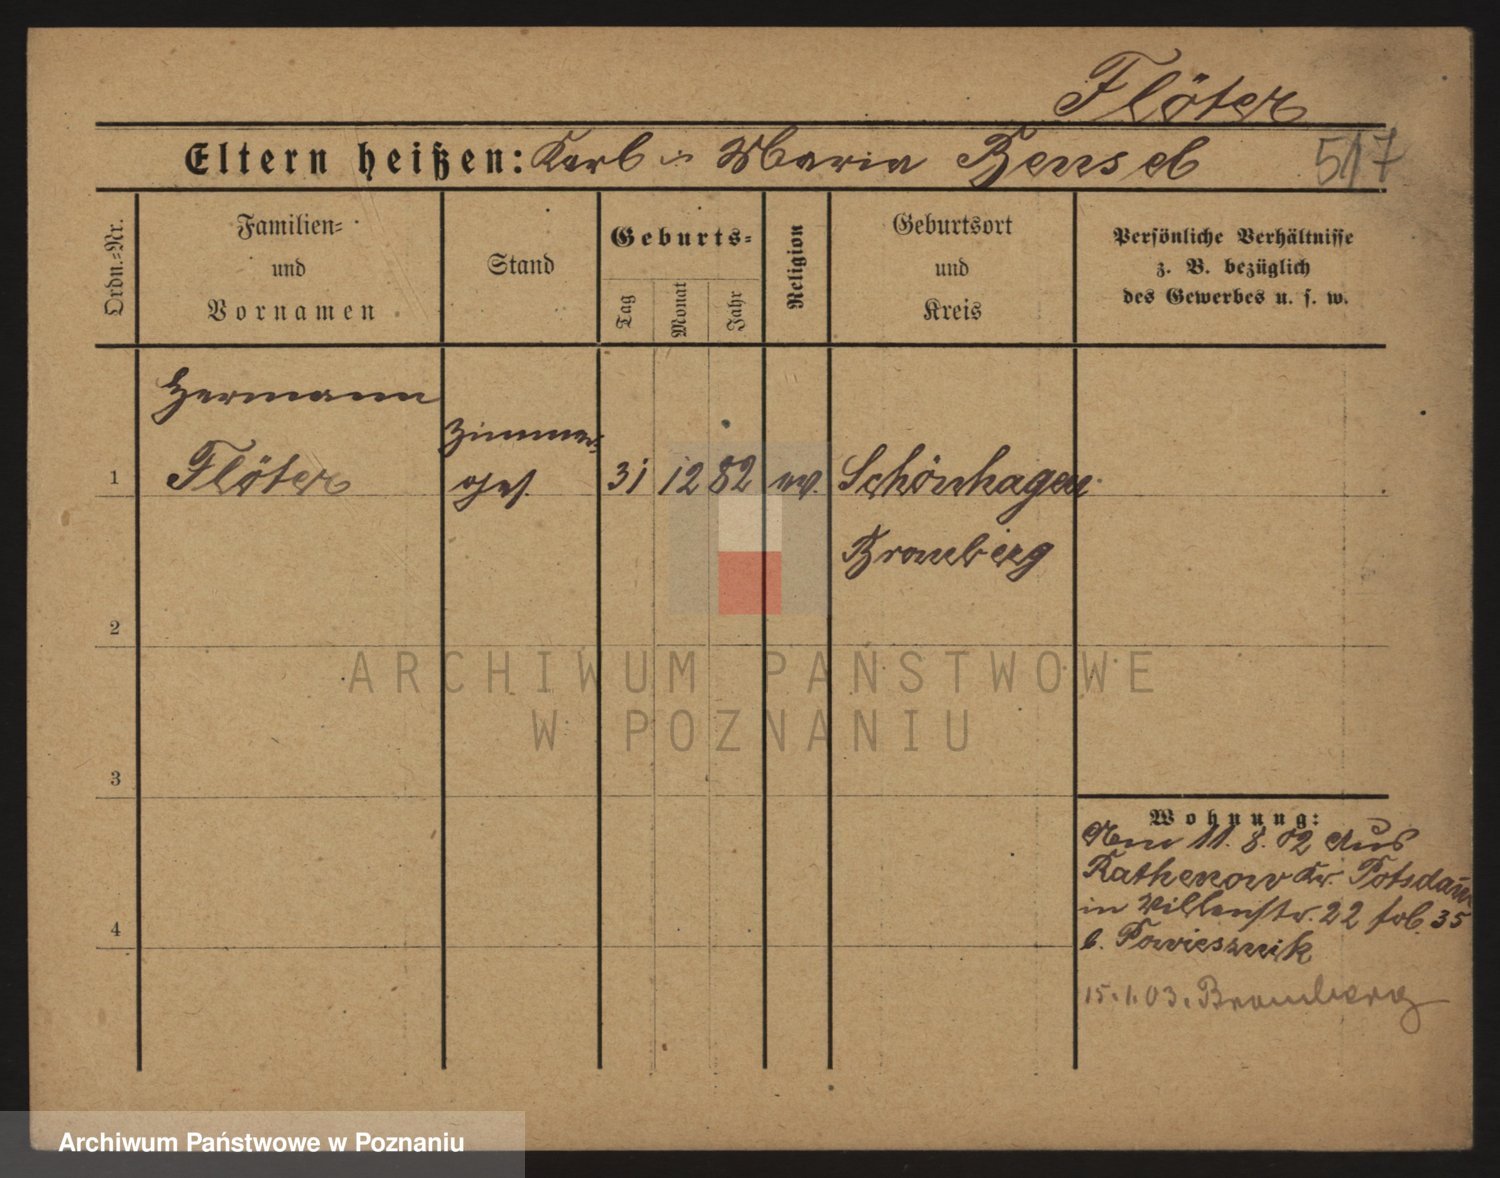 Flöter
Eltern heißen: Karl u. Maria Hensel
517
Ordn.-Nr.
Familien-
und
Vornamen
Stand
Geburts-
Tag
Monat
Jahr
Religion
Geburtsort
und
Kreis
Persönliche Verhältnisse
z. B. bezüglich
des Gewerbes u. s. w.
Hermann
Zimmer-
1 Flöter ges. 31 12 82 ev. Schönhagen
Bromberg
2
3
4
Wohnung:
11.8.02 Aus
Rathenow Kr. Potsdam
in Villenstr. 22 fol. 35
b.
15.1.03. Bromberg
ARCHIWUM PAŃSTWOWE
W POZNANIU
Archiwum Państwowe w Poznaniu